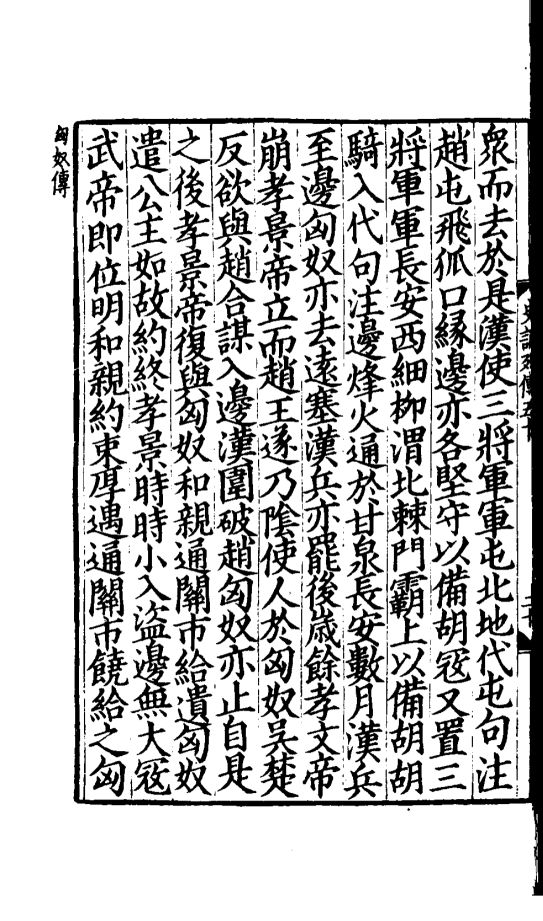 衆而去於是漢使三將軍軍屯北地代屯句注
趙屯飛狐口緣邊亦各堅守以備胡冦又置三
將軍軍長安西細栁渭北棘門霸上以備胡胡
騎入代句注邊烽火通於甘泉長安數月漢兵
至邊匈奴亦去遠塞漢兵亦罷後歲餘孝文帝
崩孝景帝立而趙王遂乃隂使人於匈奴吳楚
反欲與趙合謀入邊漢圍破趙匈奴亦止自是
之後孝景帝復與匈奴和親通關市給遺匈奴
遣公主如故約終孝景時時小入盜邊無大冦
武帝即位明和親約束厚遇通關市饒給之匈
匈奴傳